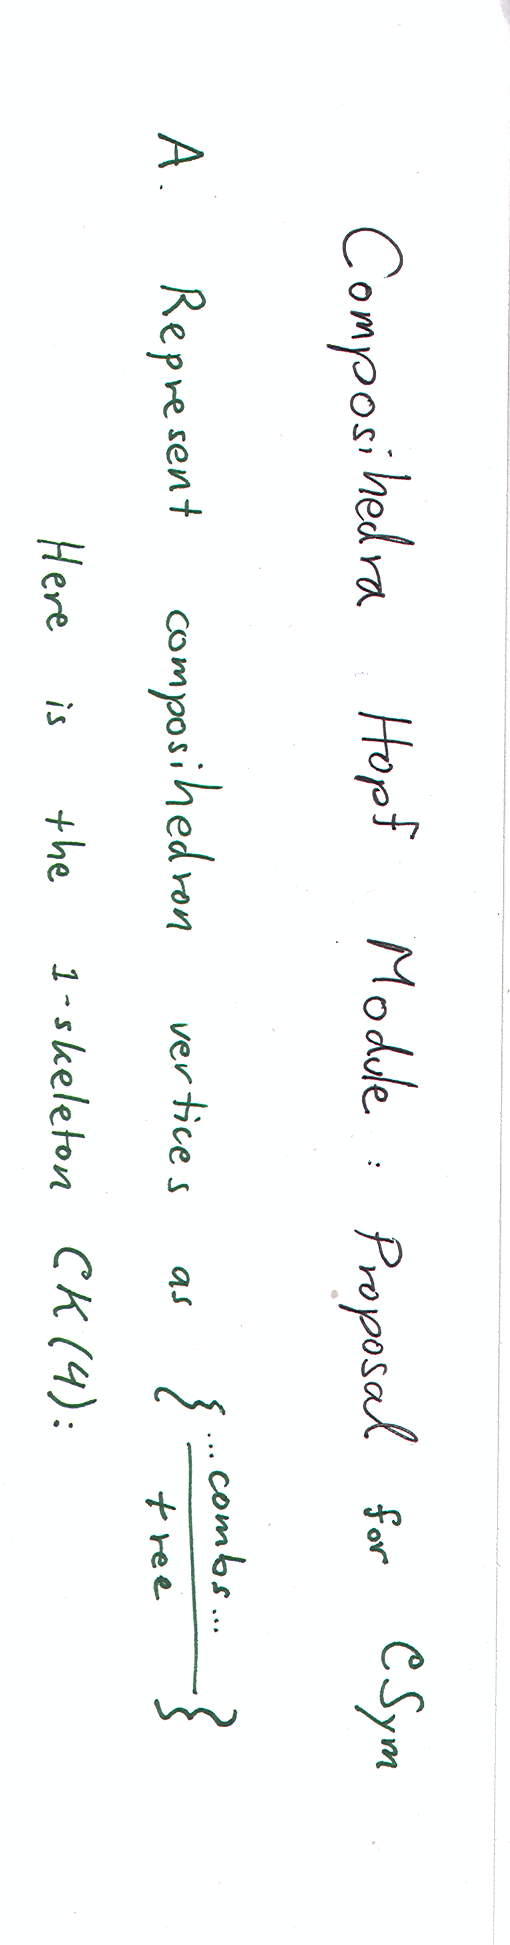 Composihedra Hopf Module : Proposal for CSym
A. Represent composihedron vertices as { ...combs... / tree }
Here is the 1-skeleton CK(4):